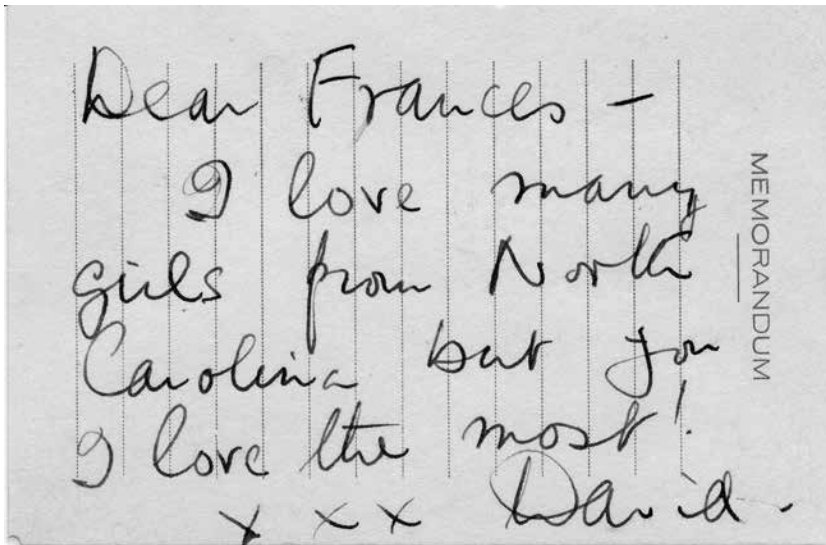 Dear Frances –
I love many
girls from North
Carolina but you
I love the most!
x x x David.
MEMORANDUM